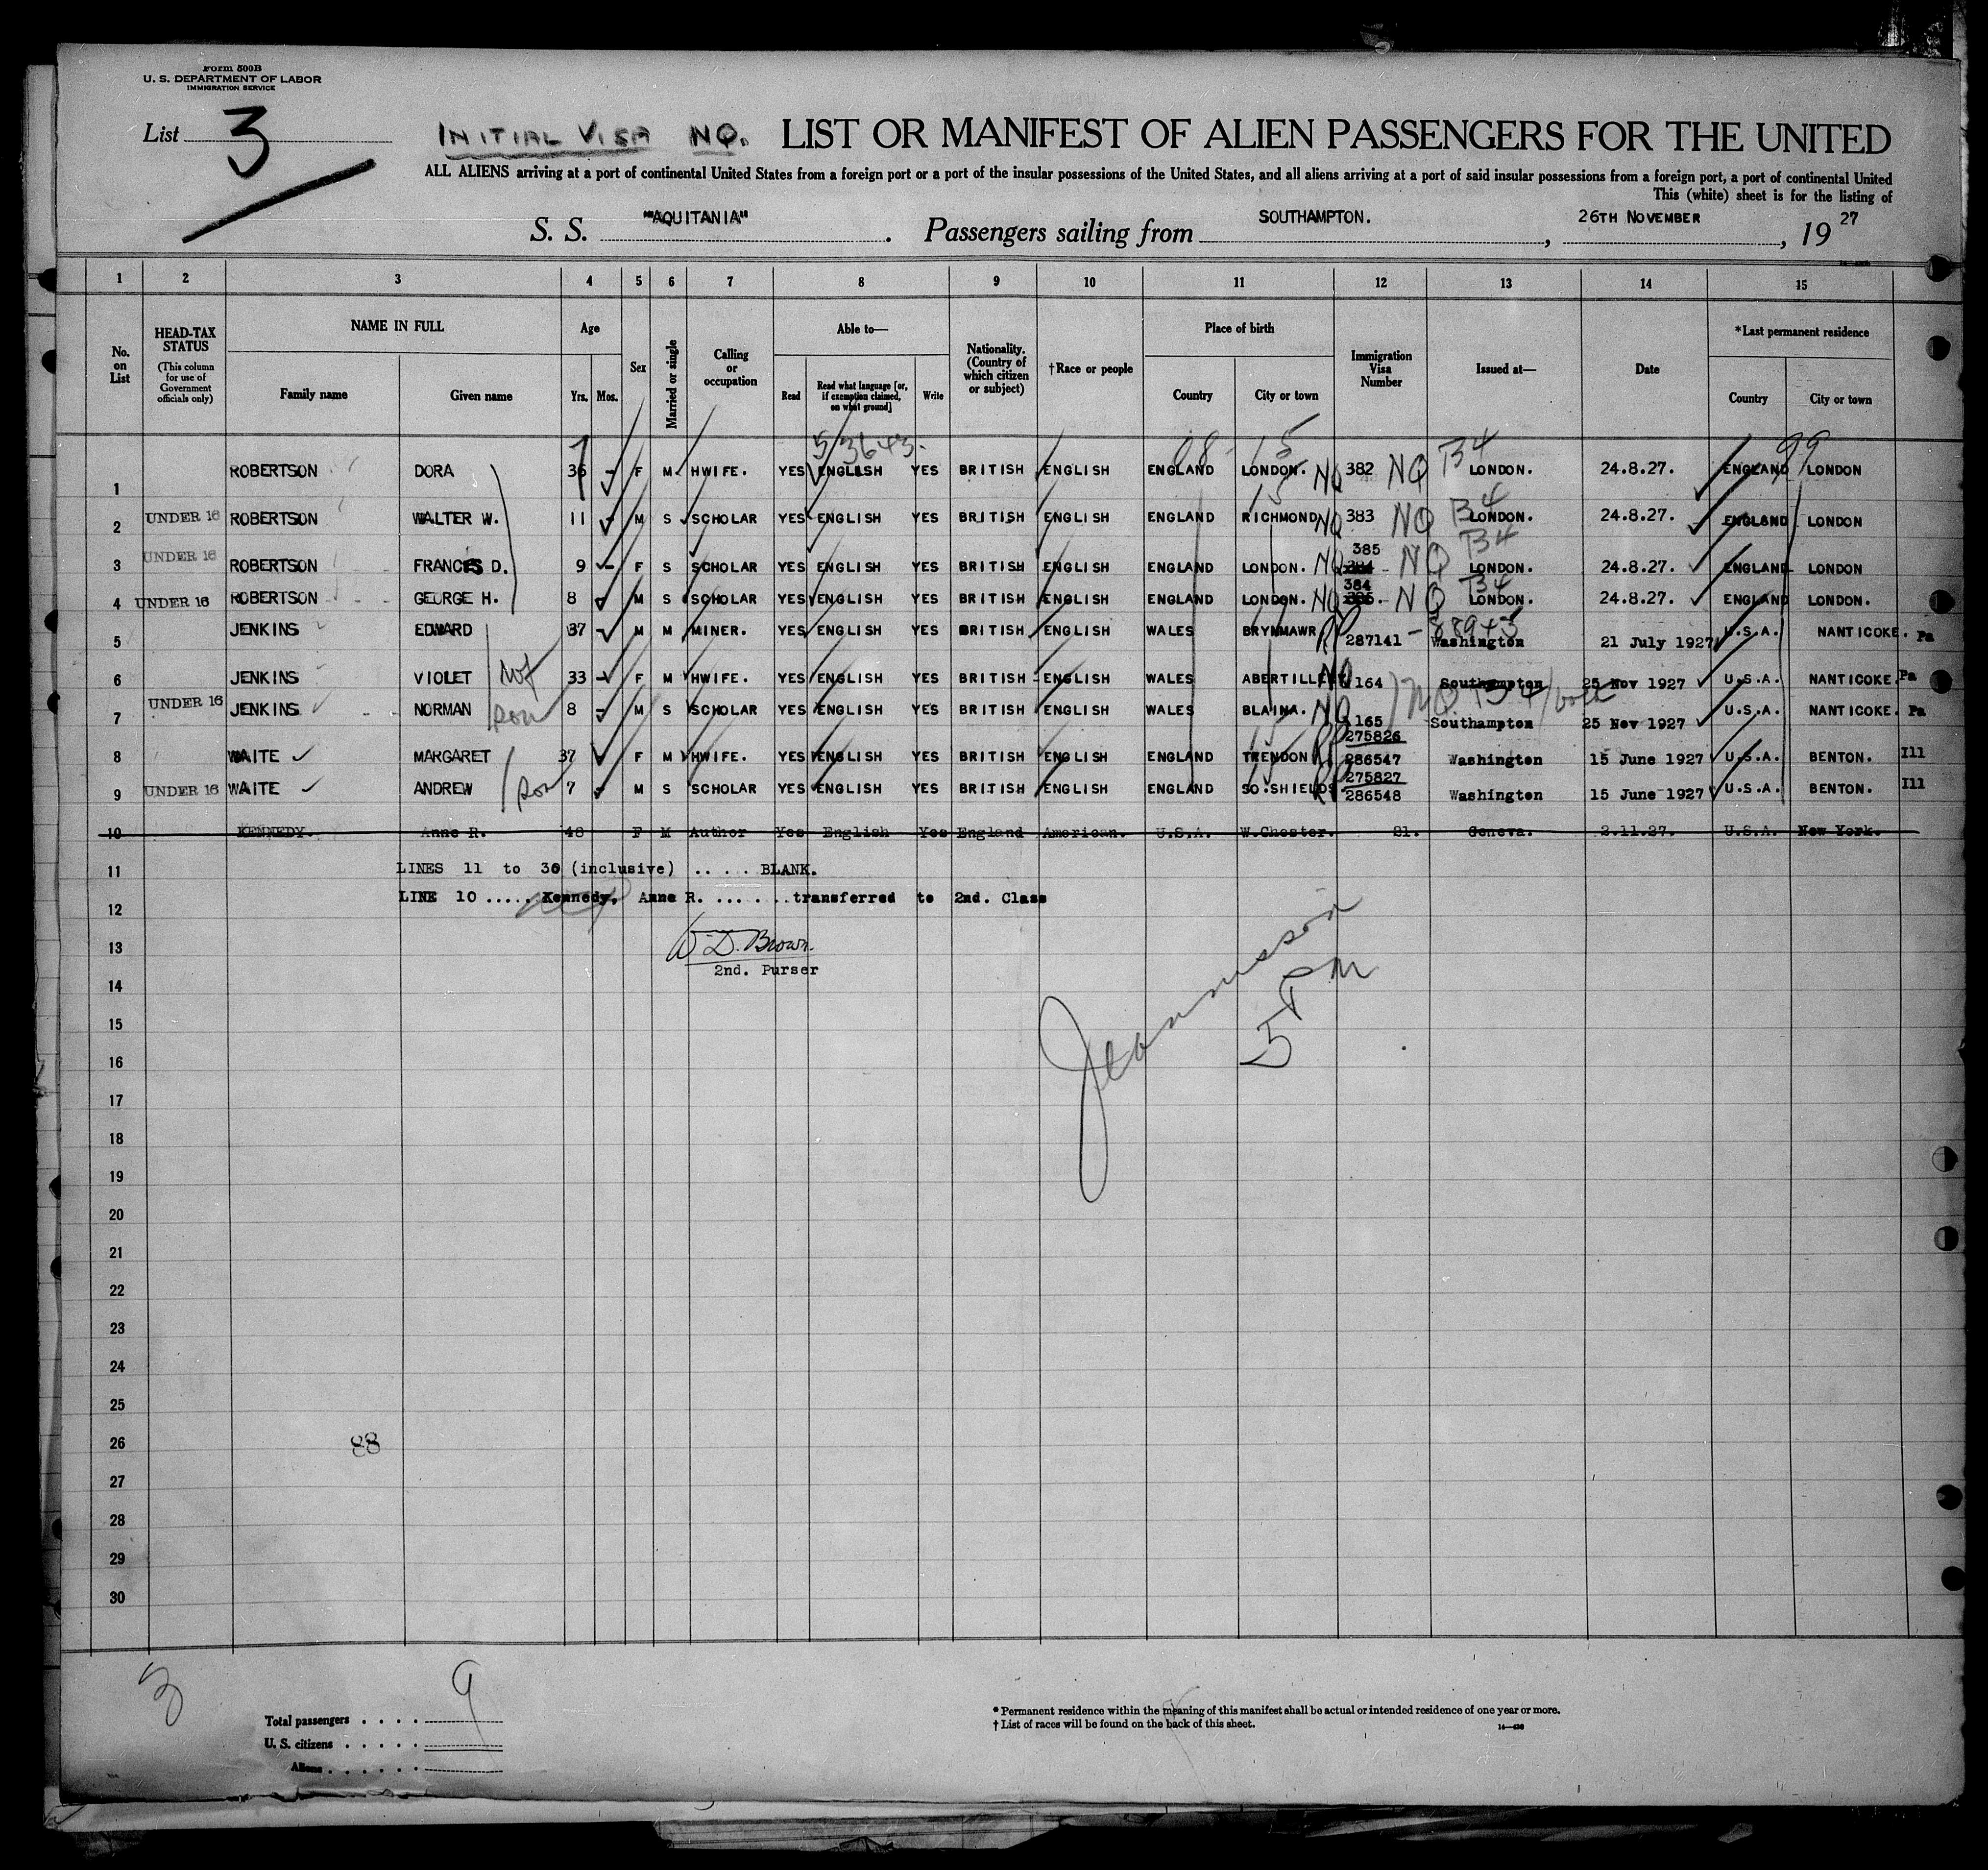 Form 500B
U. S. DEPARTMENT OF LABOR
IMMIGRATION SERVICE
List 3
INITIAL VISA NO. LIST OR MANIFEST OF ALIEN PASSENGERS FOR THE UNITED
ALL ALIENS arriving at a port of continental United States from a foreign port or a port of the insular possessions of the United States, and all aliens arriving at a port of said insular possessions from a foreign port, a port of continental United
This (white) sheet is for the listing of
S. S. "AQUITANIA" . Passengers sailing from SOUTHAMPTON. , 26TH NOVEMBER , 19 27
1 2 3 4 5 6 7 8 9 10 11 12 13 14 15
No. on List HEAD-TAX STATUS (This column for use of Government officials only) NAME IN FULL Family name Given name Age Yrs. Mos. Sex Married or single Calling or occupation Able to— Read Read what language [or, if exemption claimed, on what ground] Write Nationality. (Country of which citizen or subject) †Race or people Place of birth Country City or town Immigration Visa Number Issued at— Date *Last permanent residence Country City or town
53643. 08 - 15 99
1 ROBERTSON DORA 36 - F M. HWIFE. YES ENGLISH YES BRITISH ENGLISH ENGLAND LONDON. NQ 382 NQ B4 LONDON. 24.8.27. ENGLAND LONDON
2 UNDER 16 ROBERTSON WALTER W. 11 - M S SCHOLAR YES ENGLISH YES BRITISH ENGLISH ENGLAND RICHMOND 15 NQ 383 NQ B4 LONDON. 24.8.27. ENGLAND LONDON
3 UNDER 16 ROBERTSON FRANCES D. 9 - F S SCHOLAR YES ENGLISH YES BRITISH ENGLISH ENGLAND LONDON. NQ 385 NQ B4 LONDON. 24.8.27. ENGLAND LONDON
4 UNDER 16 ROBERTSON GEORGE H. 8 M S SCHOLAR YES ENGLISH YES BRITISH ENGLISH ENGLAND LONDON. NQ 384 NQ B4 LONDON. 24.8.27. ENGLAND LONDON.
5 JENKINS EDWARD 37 - M M MINER. YES ENGLISH YES BRITISH ENGLISH WALES BRYNMAWR RP 287141 - 88943 Washington 21 July 1927 U.S.A. NANTICOKE. Pa
6 JENKINS VIOLET wf 33 - F M HWIFE. YES ENGLISH YES BRITISH ENGLISH WALES ABERTILLERY NQ 164 Southampton 25 Nov 1927 U.S.A. NANTICOKE. Pa
7 UNDER 16 JENKINS NORMAN son 8 - M S SCHOLAR YES ENGLISH YES BRITISH ENGLISH WALES BLAINA. NQ 165 NQ B4 both Southampton 25 Nov 1927 U.S.A. NANTICOKE. Pa
8 WAITE MARGARET 37 F M HWIFE. YES ENGLISH YES BRITISH ENGLISH ENGLAND TRENDON RP 275826 286547 Washington 15 June 1927 U.S.A. BENTON. Ill
9 UNDER 16 WAITE ANDREW son 7 M S SCHOLAR YES ENGLISH YES BRITISH ENGLISH ENGLAND SO.SHIELDS RP 275827 286548 Washington 15 June 1927 U.S.A. BENTON. Ill
10 KENNEDY. Anne R. 48 F M Author Yes English Yes England American. U.S.A. W.Chester. 21. Geneva. 2.11.27. U.S.A. New York.
11 LINES 11 to 30 (inclusive) .. .. BLANK.
12 LINE 10 ..... Kennedy, Anne R. .......transferred to 2nd. Class
13 W. D. Brown.
2nd. Purser
14
15
16
5 PM
17
18
19
20
21
22
23
24
25
26 88
27
28
29
30
3 9
Total passengers . . . .
U. S. citizens . . . . .
Aliens . . . . . .
* Permanent residence within the meaning of this manifest shall be actual or intended residence of one year or more.
† List of races will be found on the back of this sheet.
14—430